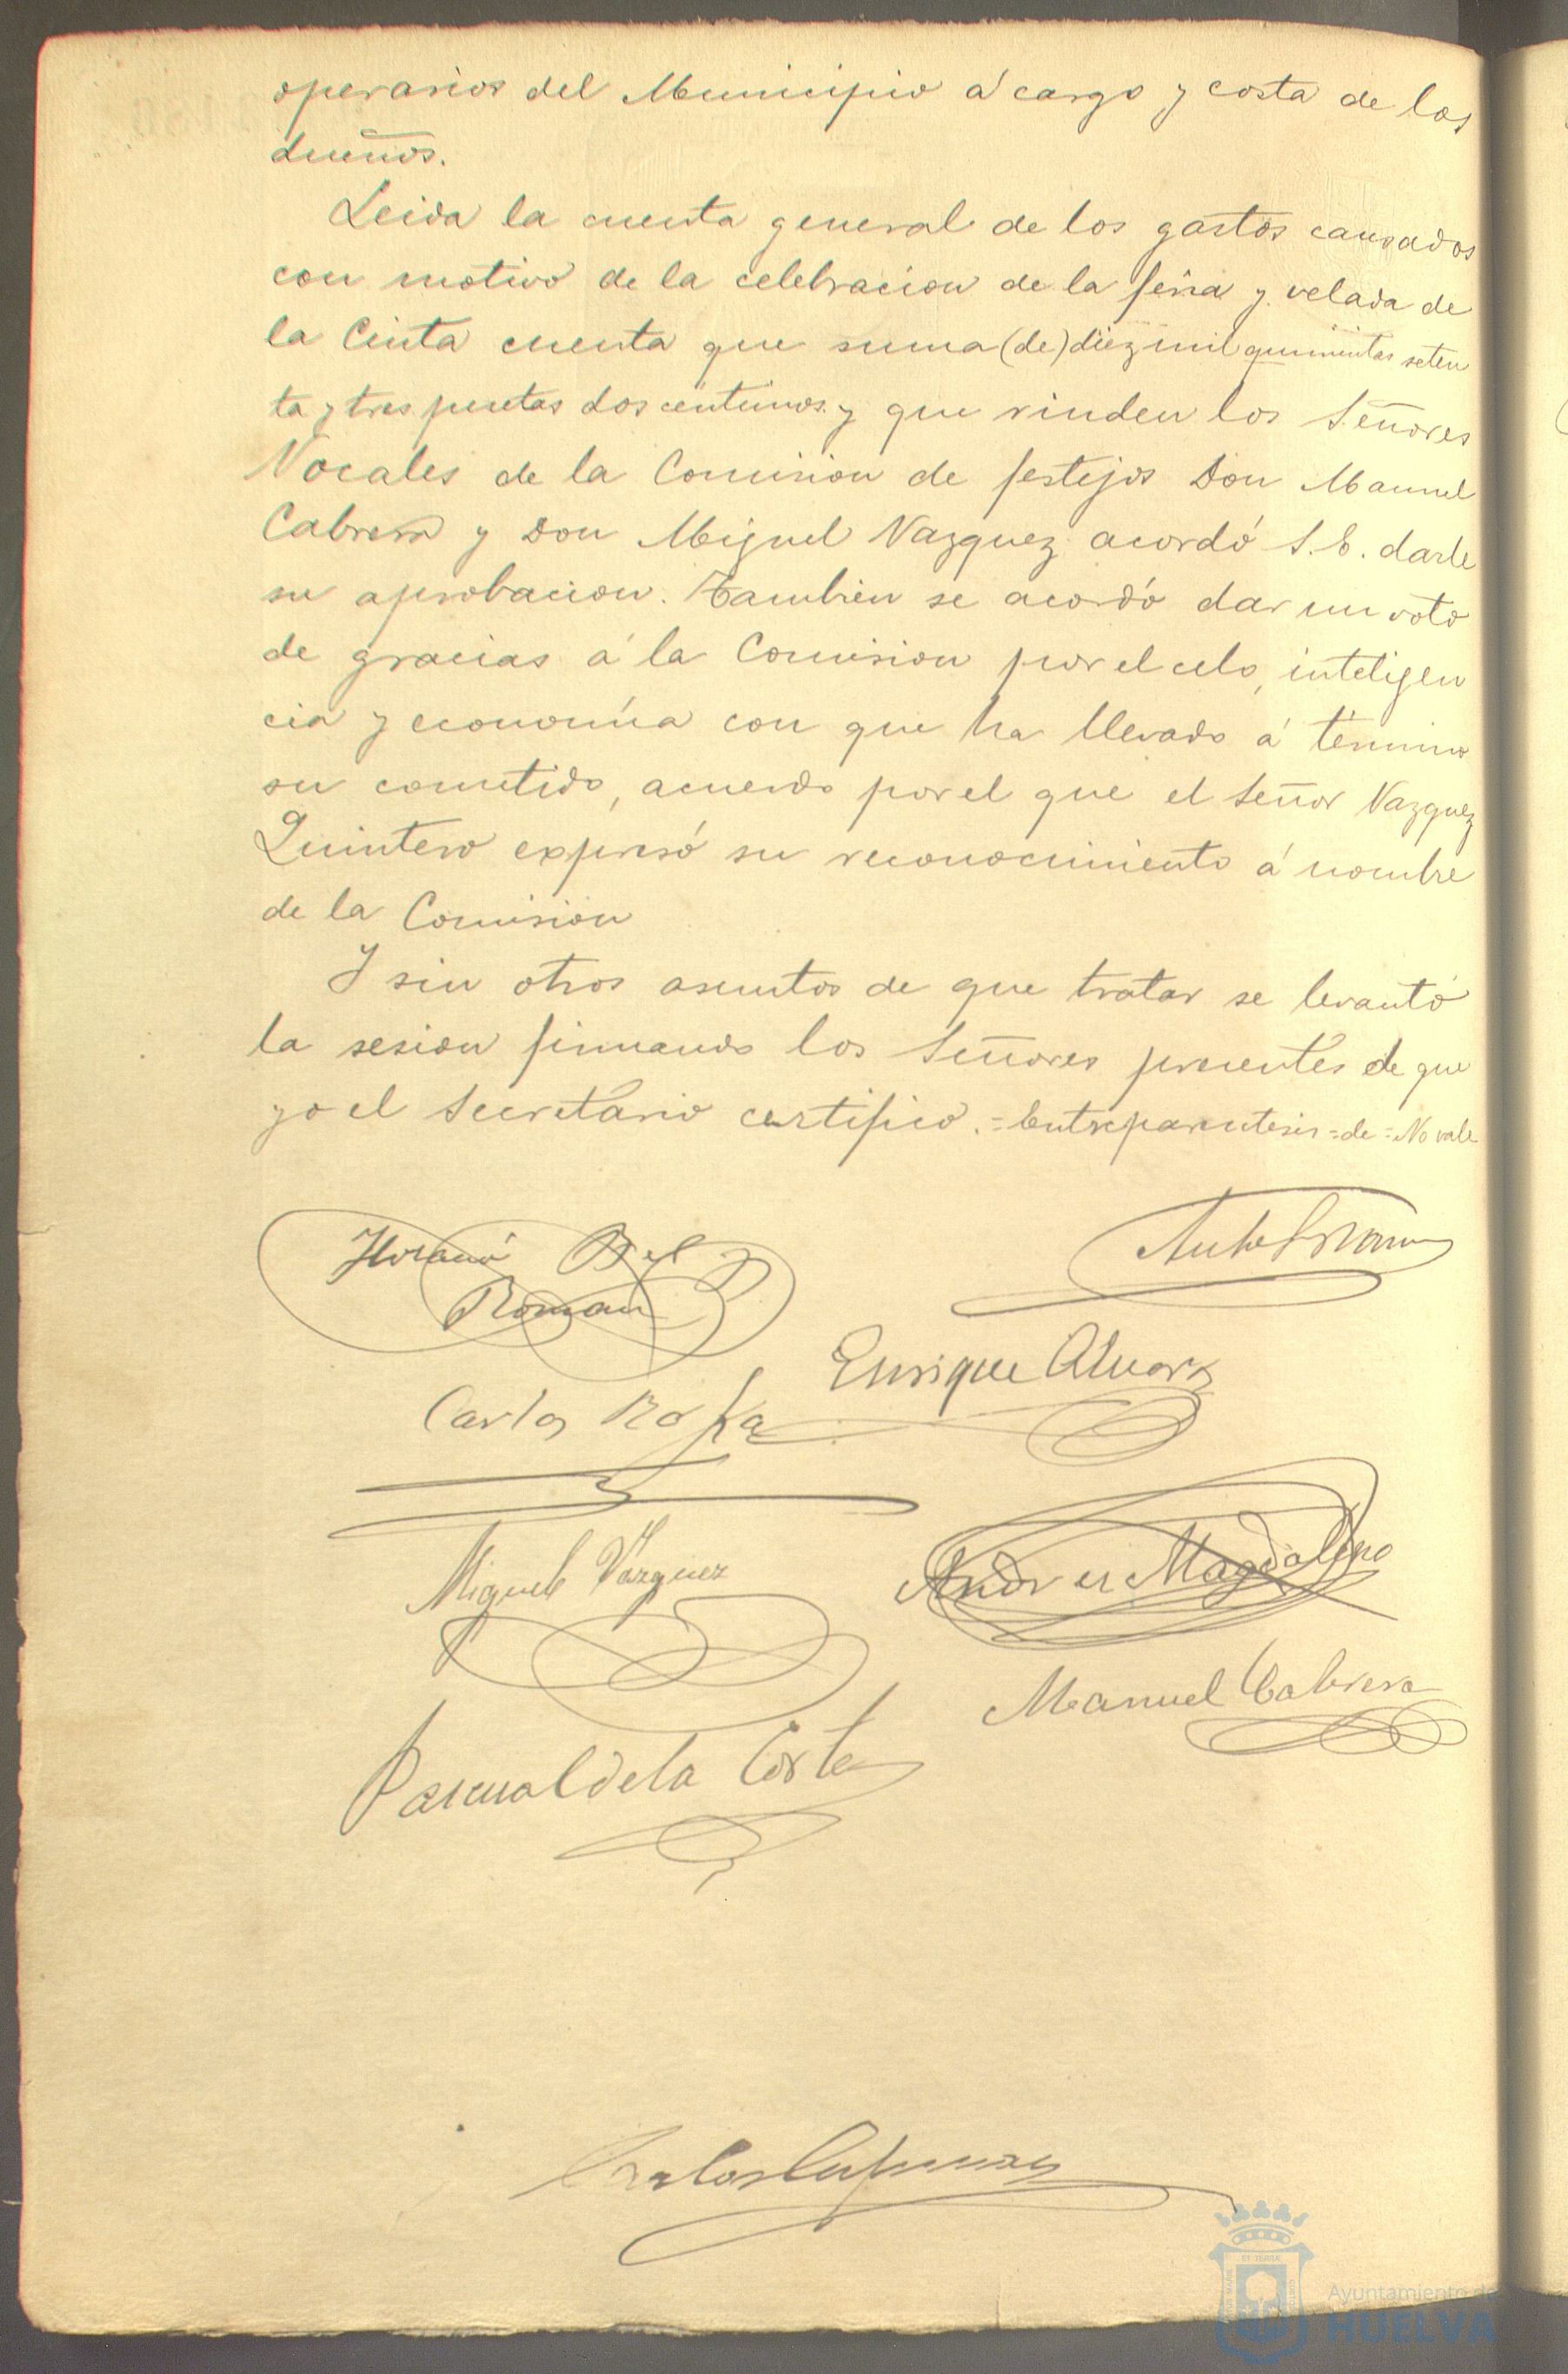 operarios del Municipio á cargo y costa de los
dueños.
Leida la cuenta general de los gastos causados
con motivo de la celebracion de la feria y velada de
la Cinta cuenta que suma (de) diez mil quinientas seten
ta y tres pesetas dos centimos y que rinden los Señores
Vocales de la Comision de festejos Don Manuel
Cabrera y Don Miguel Vazquez acordó S.E. darle
su aprobacion. Tambien se acordó dar un voto
de gracias á la Comision por el celo, inteligen
cia y economia con que ha llevado á término
su cometido, acuerdo por el que el Señor Vazquez
Quintero expresó su reconocimiento á nombre
de la Comision
Y sin otros asuntos de que tratar se levantó
la sesion firmando los Señores presentes de que
yo el Secretario certifico. = Entreparentesis = de = No vale
Horacio Bel
Roman
Enrique Alvarez
Carlos
Miguel Vazquez
Andres Magdaleno
Manuel Cabrera
Pascual de la Corte
Ayuntamiento de
HUELVA